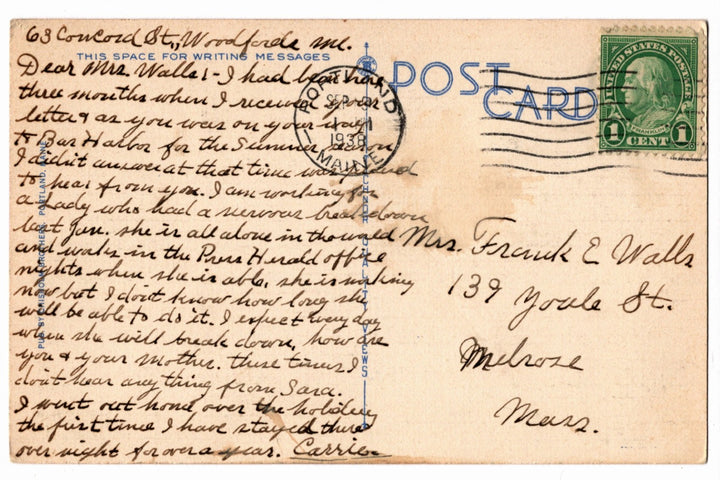 63 Concord St., Woodfords Me.
THIS SPACE FOR WRITING MESSAGES
Dear Mrs. Walls:- I had been here
three months when I received your
letter & as you was on your way
to Bar Harbor for the Summer season
I didn't answer at that time was glad
to hear from you. I am working for
a lady who had a nervous breakdown
last Jan. she is all alone in the world
and works in the Press Herald office
nights when she is able, she is working
now but I don't know how long she
will be able to do it. I expect every day
when she will break down, how are
you & your mother. these times I
don't hear anything from Sara.
I went out home over the holiday
the first time I have stayed there
over night for over a year. Carrie.
POST
CARD
PORTLAND
SEP
1938
MAINE
UNITED STATES POSTAGE
FRANKLIN
1 CENT 1
Mrs. Frank E Walls
139 Youle St.
Melrose
Mass.
PORTLAND, MAINE
QUALITY VIEWS